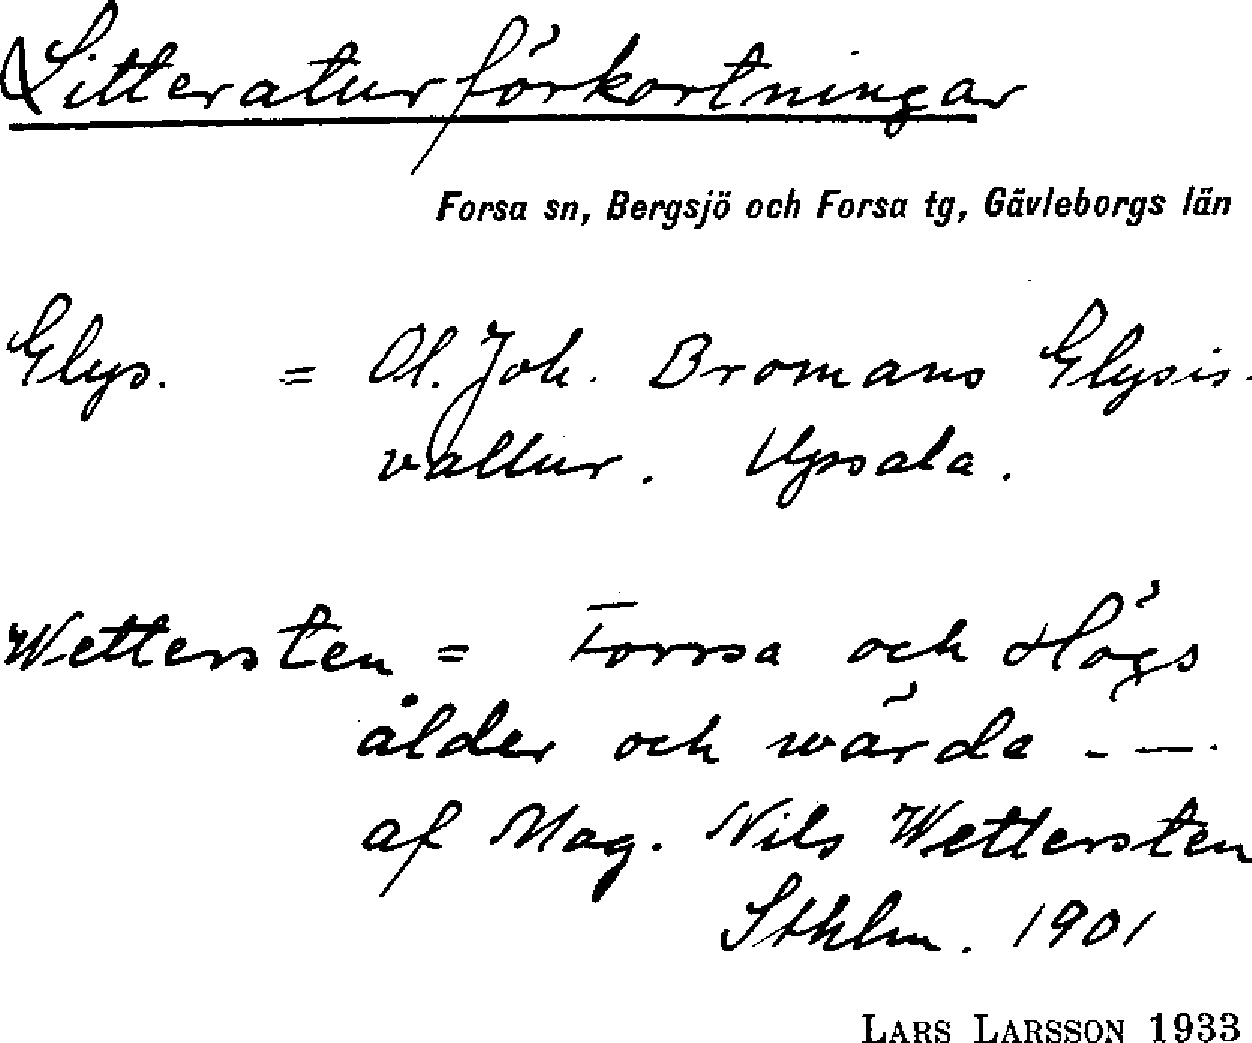 Litteraturförkortningar
Forsa sn, Bergsjö och Forsa tg, Gävleborgs län
Glys. = Ol. Joh. Bromans Glysis-
vallur. Upsala.
Wettersten = Forssa och Högs
ålder och wärde - —.
af Mag. Nils Wettersten
Sthlm. 1901
LARS LARSSON 1933